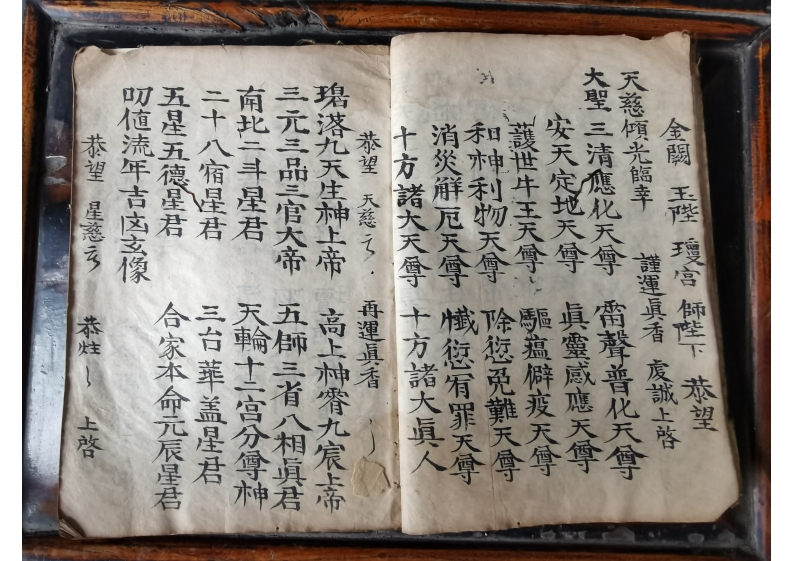 金闕 玉陛 瓊宮 師陛下 恭望
天慈傾光臨幸 謹運眞香 虔誠上啓
大聖三清應化天尊 雷聲普化天尊
安天定地天尊 眞靈感應天尊
護世牛王天尊 驅瘟僻疫天尊
和神利物天尊 除愆免難天尊
消災解厄天尊 懺愆宥罪天尊
十方諸大天尊 十方諸大眞人
恭望 天慈云 再運眞香
九天生神上帝 高上神霄九宸上帝
三元三品三官大帝 五師三省八相眞君
南北二斗星君 天輪十二宮分尊神
二十八宿星君 三台華盖星君
五星五德星君 合家本命元辰星君
叨值流年吉凶玄像
恭望 星慈云 恭炷 上啓